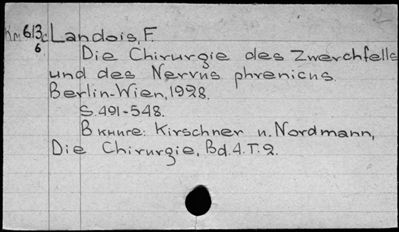 Km 613c Landois, F.
6
Die Chirurgie des Zwerchfells
und des Nervus phrenicus.
Berlin-Wien, 1928.
S. 491-548.
В книге: Kirschner u. Nordmann,
Die Chirurgie, Bd. 4. T. 2.